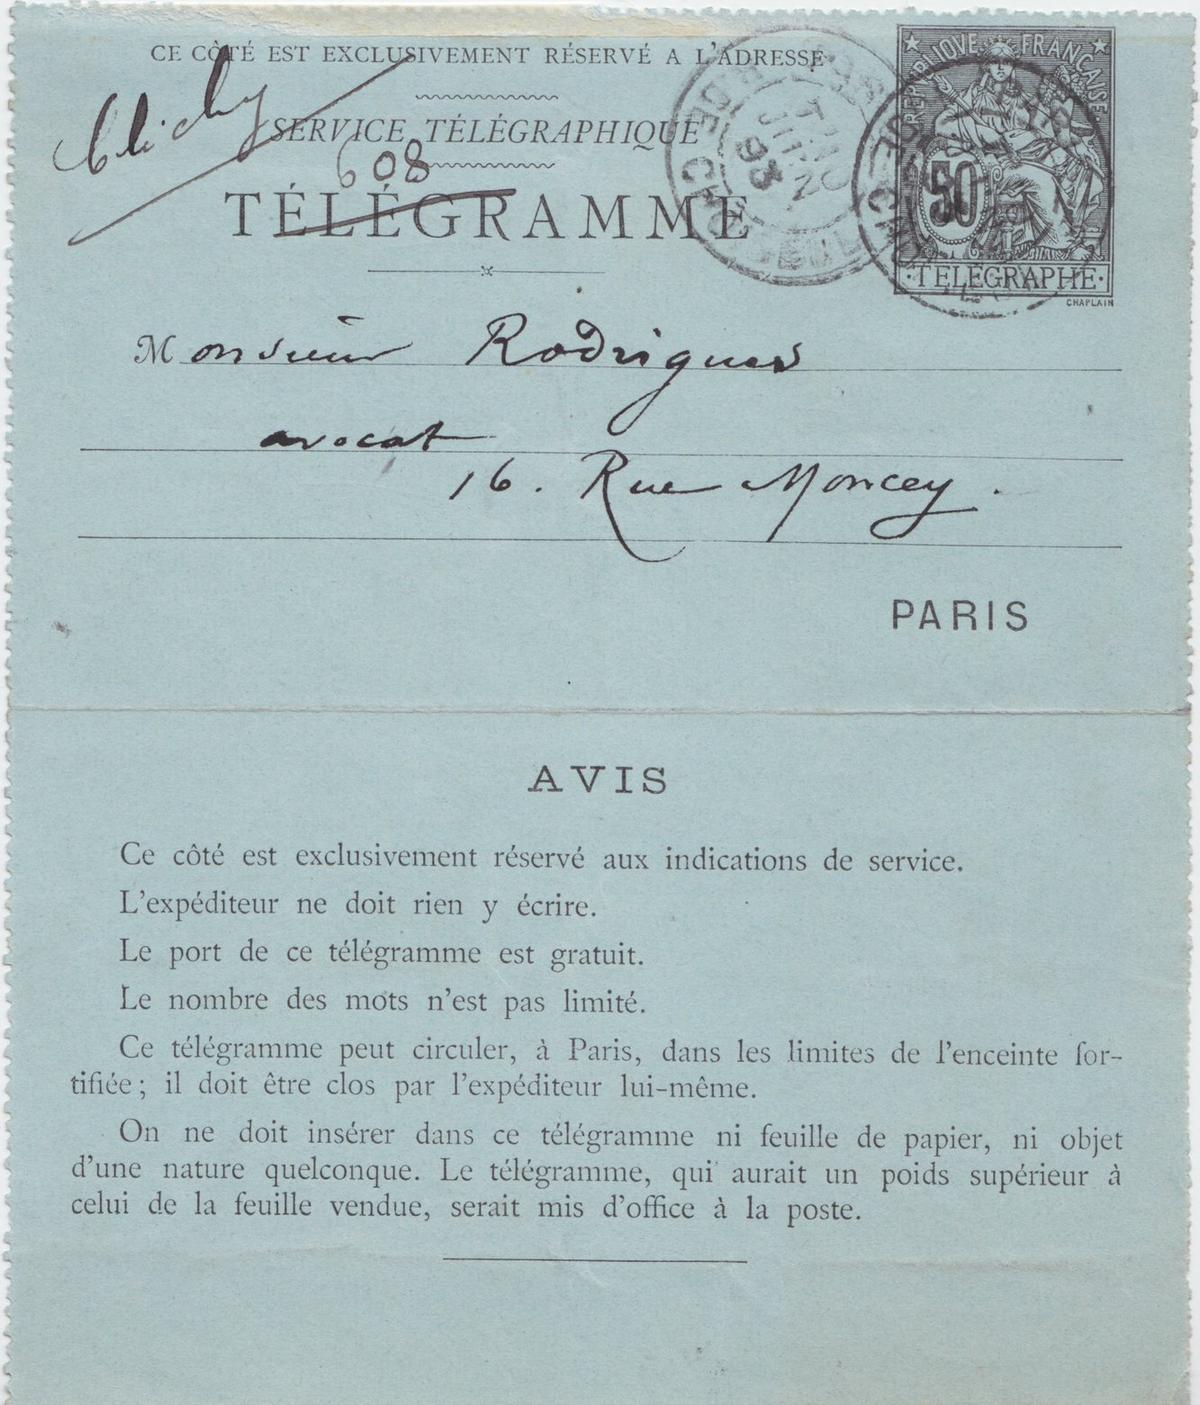 CE CÔTÉ EST EXCLUSIVEMENT RÉSERVÉ A L'ADRESSE
Clichy
SERVICE TÉLÉGRAPHIQUE
608
TÉLÉGRAMME
RÉPUBLIQUE FRANÇAISE
50
TÉLÉGRAPHE
CHAPLAIN
PARIS
DE CHOISEUL
JUIN
93
Monsieur Rodrigues
avocat
16. Rue Moncey.
PARIS
AVIS
Ce côté est exclusivement réservé aux indications de service.
L'expéditeur ne doit rien y écrire.
Le port de ce télégramme est gratuit.
Le nombre des mots n'est pas limité.
Ce télégramme peut circuler, à Paris, dans les limites de l'enceinte for-
tifiée; il doit être clos par l'expéditeur lui-même.
On ne doit insérer dans ce télégramme ni feuille de papier, ni objet
d'une nature quelconque. Le télégramme, qui aurait un poids supérieur à
celui de la feuille vendue, serait mis d'office à la poste.